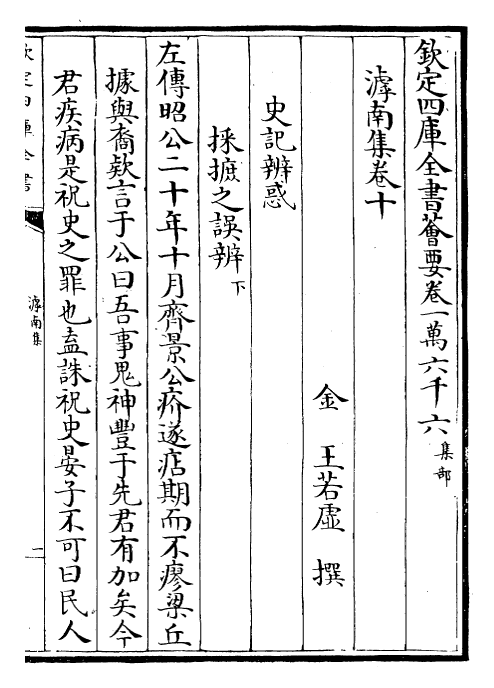 欽定四庫全書薈要卷一萬六千六 集部
滹南集卷十
金 王若虛 撰
史記辨惑
採摭之誤辨下
左傳昭公二十年十月齊景公疥遂痁期而不瘳梁丘
據與裔款言于公曰吾事鬼神豐于先君有加矣今
君疾病是祝史之罪也盍誅祝史晏子不可曰民人
欽定四庫全書
滹南集